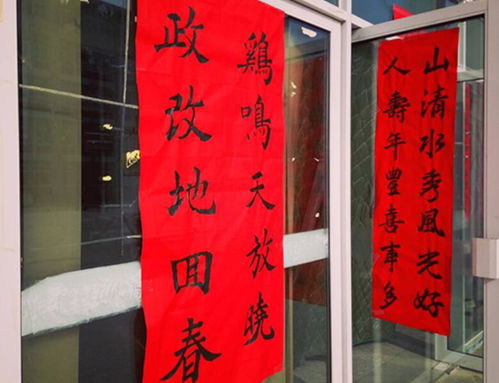 鷄鳴天放曉
政改地囬春
山清水秀風光好
人壽年豐喜事多